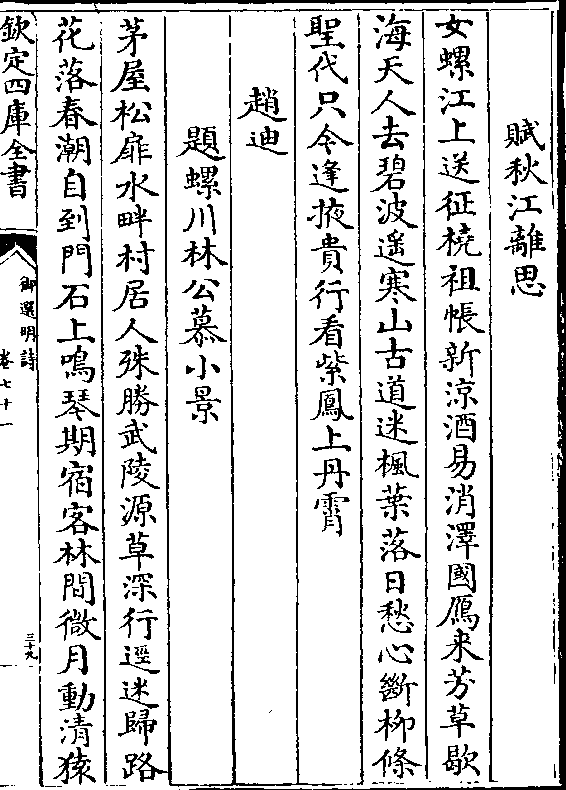 賦秋江離思
女螺江上送征橈祖帳新涼酒易消澤國鴈来芳草歇
海天人去碧波遥寒山古道迷楓葉落日愁心斷柳條
聖代只今逢掖貴行看紫鳳上丹霄
趙迪
題螺川林公慕小景
茅屋松扉水畔村居人殊勝武陵源草深行逕迷歸路
花落春潮自到門石上鳴琴期宿客林間微月動清猿
欽定四庫全書
御選明詩
卷七十一
三十九